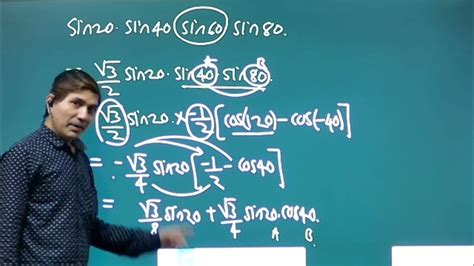 sin20 · sin40 sin60 sin 80.
A B
= √3/2 sin20 · sin 40 · sin 80
√3/2 sin20 × -1/2 [cos(120) - cos(-40)]
= -√3/4 sin20 [-1/2 - cos40]
= √3/8 sin20 + √3/4 sin20 · cos40.
A B.